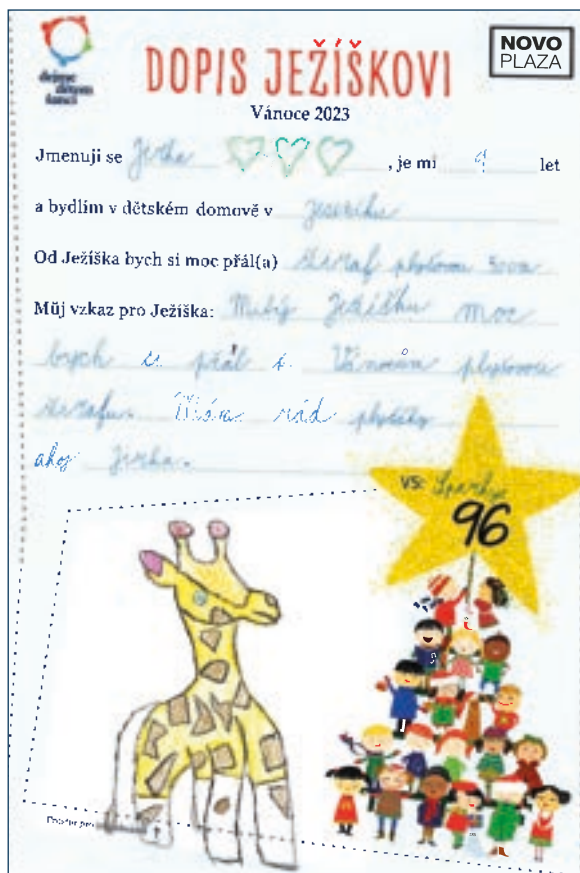 dejme dětem šanci
DOPIS JEŽÍŠKOVI
NOVO
PLAZA
Vánoce 2023
Jmenuji se Jirka , je mi 9 let
a bydlím v dětském domově v Jeseníku
Od Ježíška bych si moc přál(a) žiraf plyšovou
Můj vzkaz pro Ježíška: Milý Ježíšku moc
bych si přál k Vánocům plyšovou
žirafu. Mám rád plyšáky
ahoj Jirka.
VS: Sparkys
96
Prostor pro